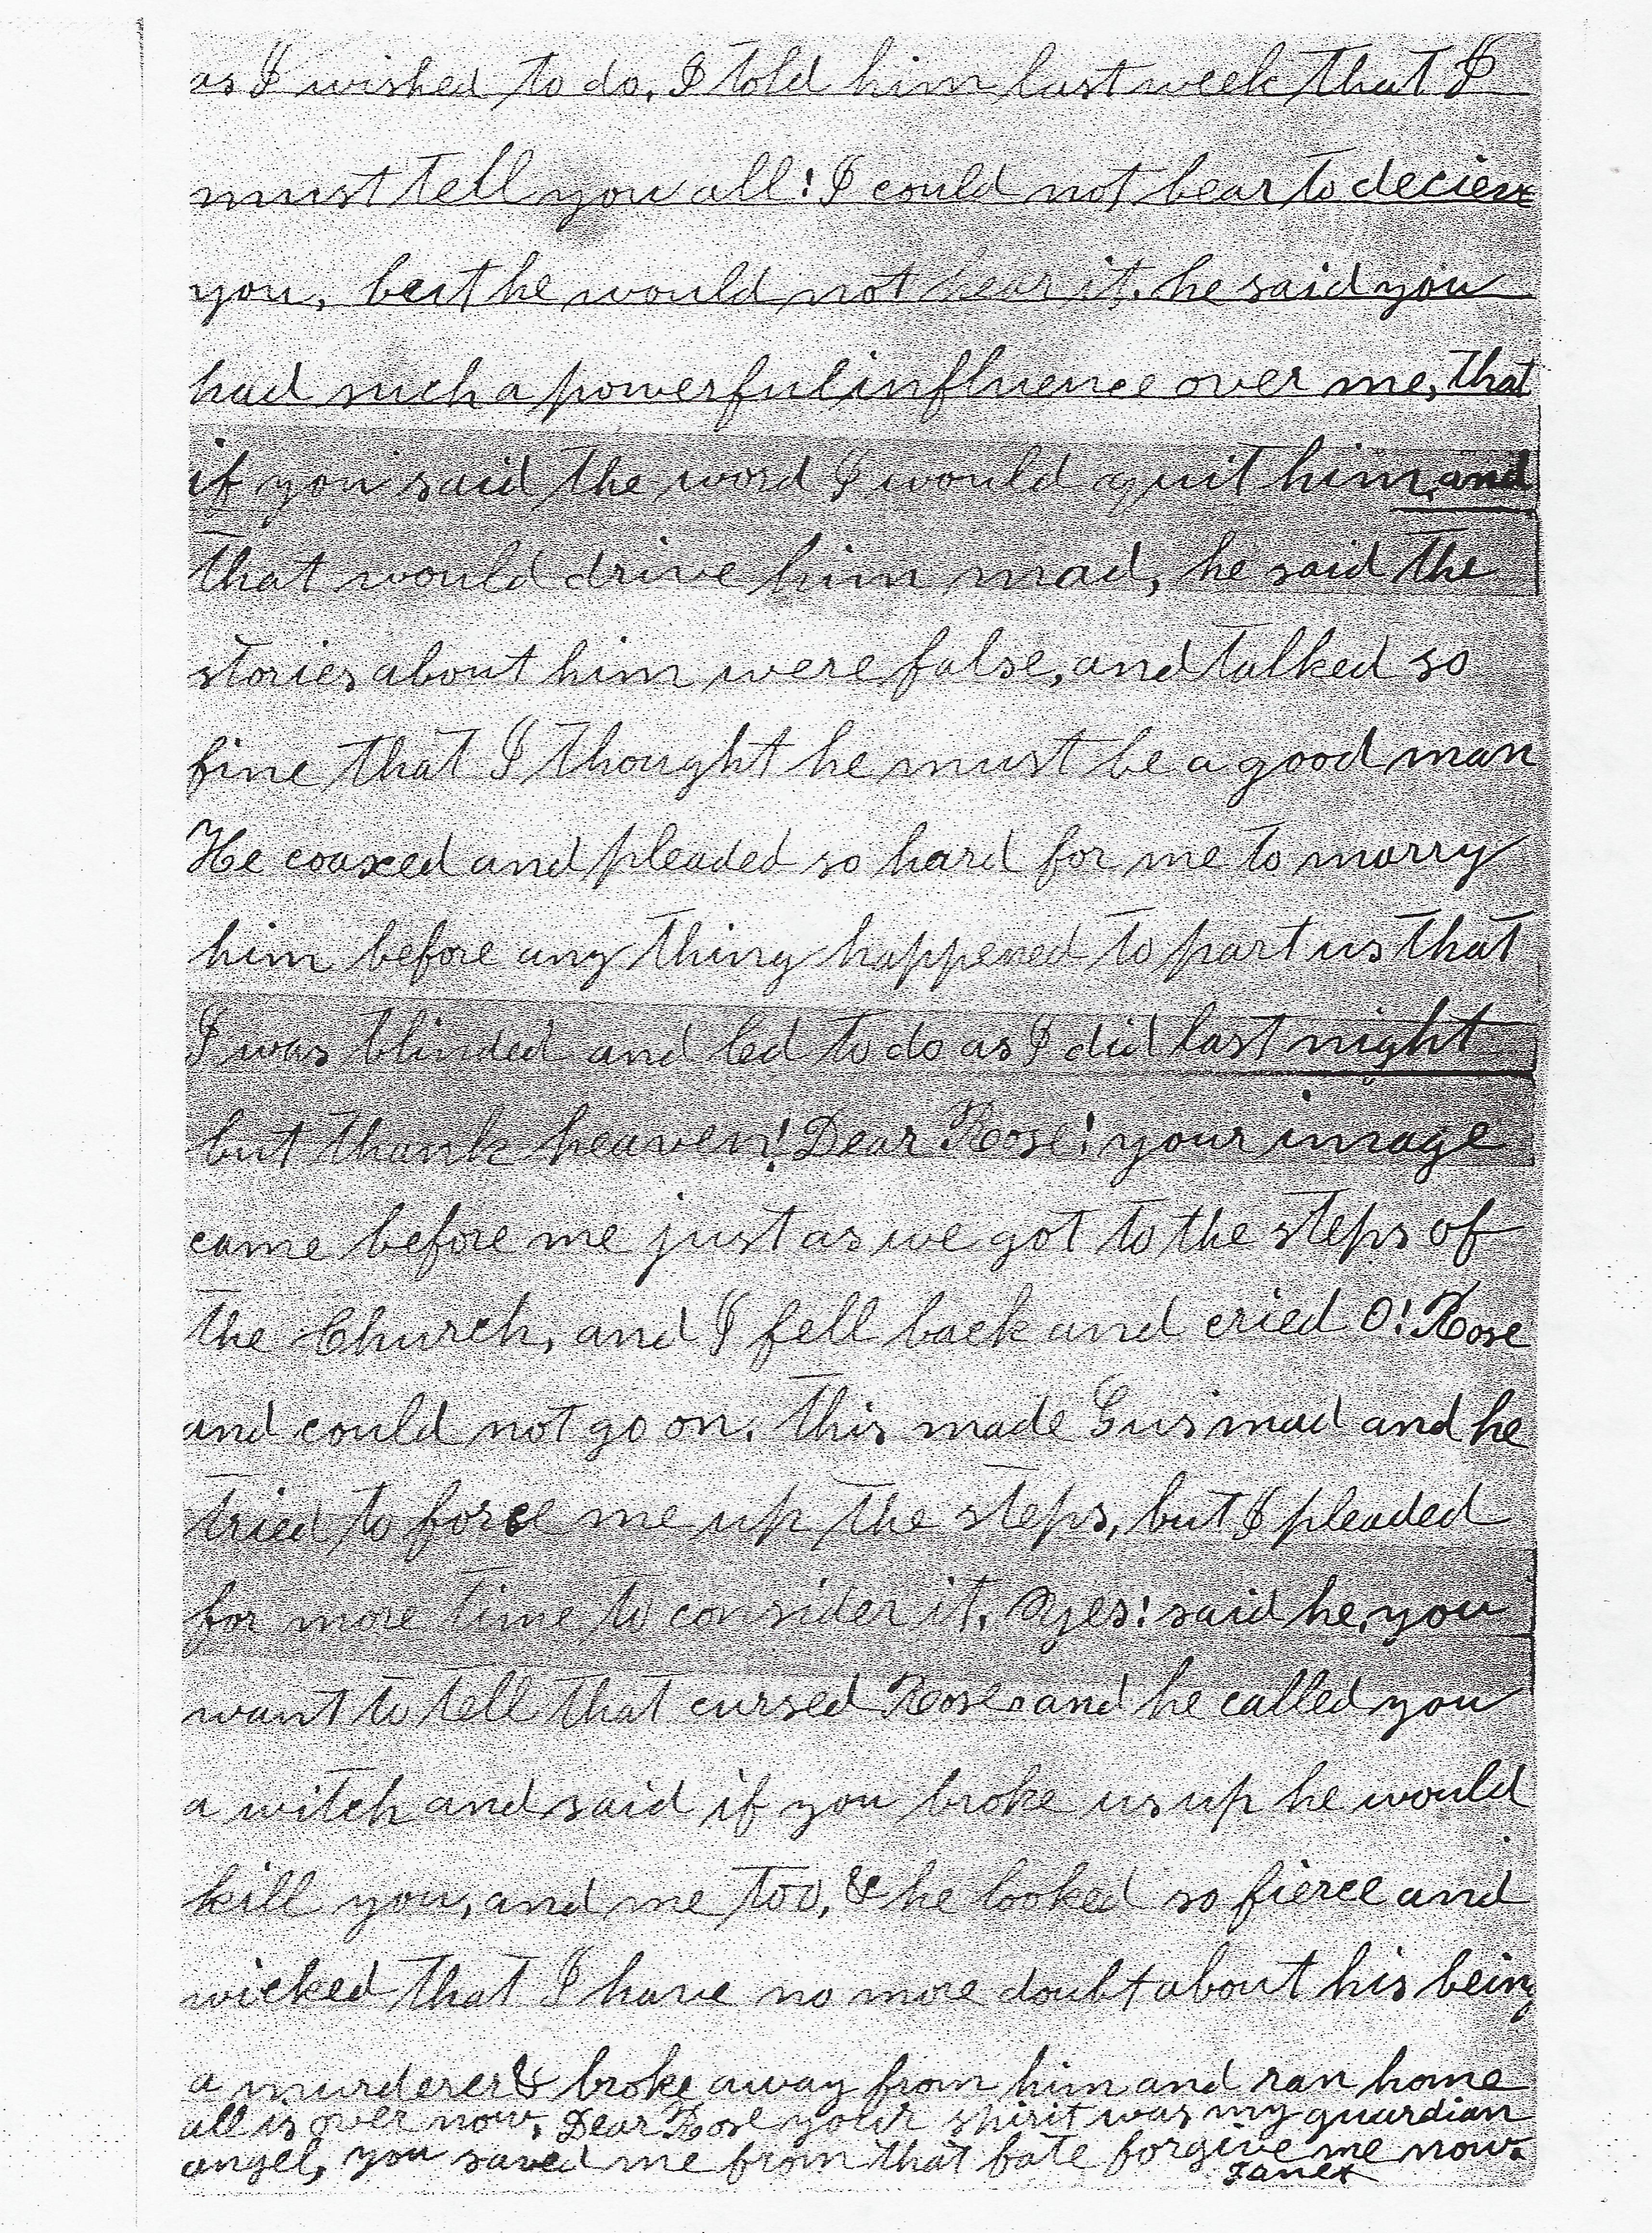 as I wished to do. I told him last week that I
must tell you all! I could not bear to decieve
you, but he would not hear it. he said you
had such a powerful influence over me, that
if you said the word I would quit him, and
that would drive him mad, he said the
stories about him were false, and talked so
fine that I thought he must be a good man
He coaxed and pleaded so hard for me to marry
him before any thing happened to part us that
I was blinded and led to do as I did last night
but thank heaven! Dear Rose! your image
came before me just as we got to the steps of
the Church, and I fell back and cried O! Rose
and could not go on. This made Gus mad and he
tried to force me up the steps, but I pleaded
for more time to consider it. Yes! said he, you
want to tell that cursed Rose and he called you
a witch and said if you broke us up he would
kill you, and me too, & he looked so fierce and
wicked that I have no more doubt about his being
a murderer & broke away from him and ran home
all is over now. Dear Rose your spirit was my guardian
angel, you saved me from that fate forgive me now.
Janet